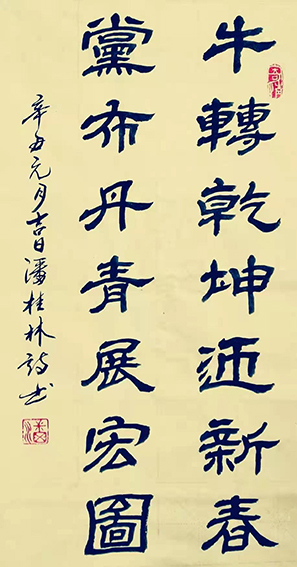 牛轉乾坤迊新春
黨布丹青展宏圖
辛丑元月吉日潘桂林詩书